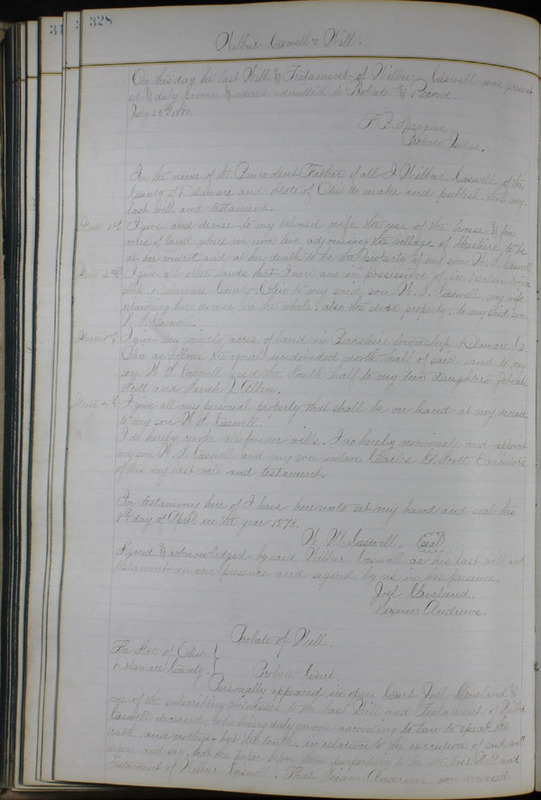 328
Wilbur Caswell's Will.
On this day the last Will & Testament of Wilbur Caswell was present
ed & duly proven & ordered admitted to Probate & Record.
Probate Judge.
In the name of the Benevolent Father of all I Wilbur Caswell of the
County of Delaware and State of Ohio do make and publish this my
last will and testament.
Item 1st I give and devise to my beloved wife the use of the house & five
acres of land where we now live adjoining the village of Cheshire to be
at her control and at her death to be the property of my son W. S. Caswell
Item 2nd I give all other lands that I now am in possession of in
Delaware County Ohio to my said son W. S. Caswell, my wife
retaining her dower in the whole, also the property to my said son
W. S. Caswell.
Item 3rd I give my ninety acres of land in Berkshire township Delaware Co
Ohio as follows the equal undivided north half of said land to my
son W. S. Caswell and the South half to my two daughters
Scott and Sarah L. Allen.
Item 4th I give all my personal property that shall be on hand at my decease
to my son W. S. Caswell.
I do hereby revoke all former wills. I do hereby nominate and appoint
my son W. S. Caswell and my son in law Charles G. Scott Executors
of this my last will and testament.
In testamony here of I have hereunto set my hand and seal this
day of in the year 1873.
W. Caswell. Seal
Signed & acknowledged by said Wilbur Caswell as his last will and
testament in our presence and signed by us in his presence.
Joel Cleveland.
Hiram Andrews.
Probate of Will.
The State of Ohio }
Delaware County. } Probate Court.
Personally appeared in open Court Joel Cleveland
one of the subscribing witnesses to the last Will and Testament of Wilbur
Caswell deceased, who being duly sworn according to law to speak the
truth and nothing but the truth, in relation to the execution of said will
depose and say, that the paper before them purporting to be the last Will and
Testament of Wilbur Caswell. That Hiram Andrews now deceased